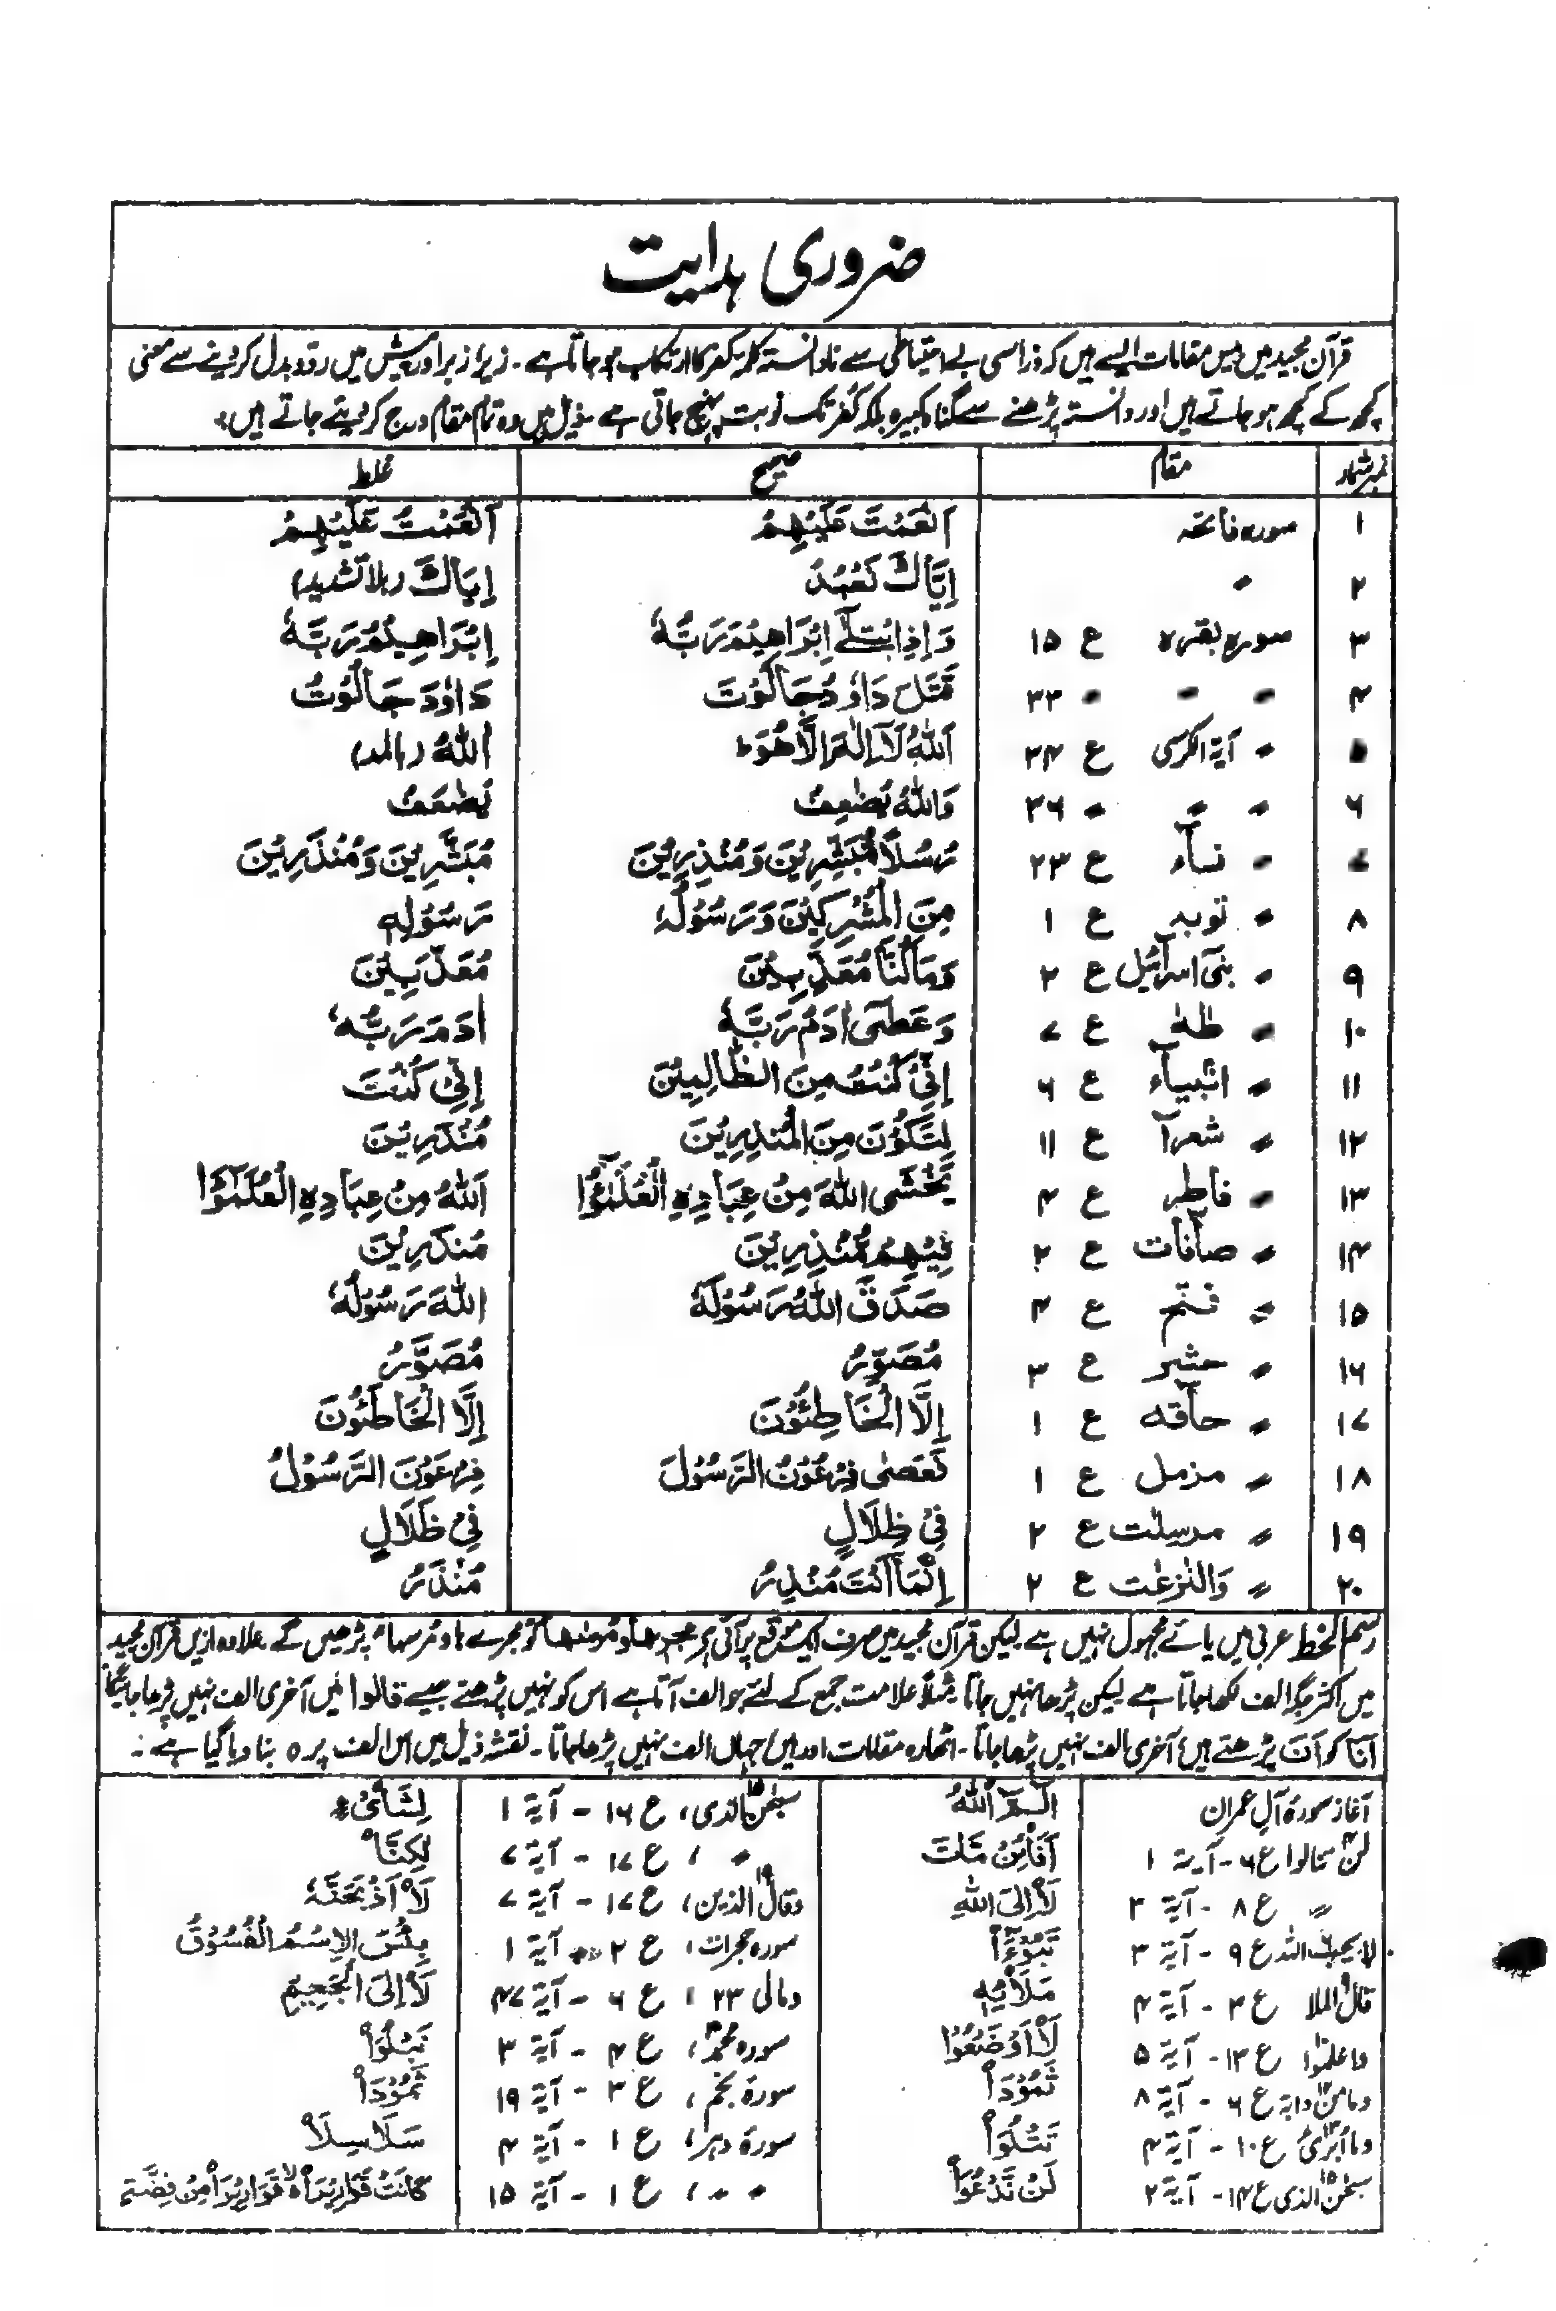 ضروری ہدایت
قرآن مجید میں بیس مقامات ایسے ہیں کہ ذرا سی بے احتیاطی سے نادانستہ کلمۂ کفر کا ارتکاب ہو جاتا ہے ۔ زیر زبر اور پیش میں ردّ و بدل کر دینے سے معنی
کچھ کے کچھ ہو جاتے ہیں اور دانستہ پڑھنے سے گناہ کبیرہ بلکہ کفر تک نوبت پہنچ جاتی ہے ۔ ذیل میں وہ تمام مقام درج کر دیئے جاتے ہیں:
نمبر شمار مقام صحیح غلط
۱ سورہ فاتحہ اَنْعَمْتَ عَلَيْهِمْ اَنْعَمْتُ عَلَيْهِمْ
۲ 〃 اِيَّاكَ نَعْبُدُ اِيَاكَ (بلا تشدید)
۳ سورہ بقرہ ع ۱۵ وَاِذِابْتَلٰٓى اِبْرَاهِيْمَ رَبُّهٗ اِبْرَاهِيْمُ رَبَّهٗ
۴ 〃 〃 〃 ۳۳ قَتَلَ دَاوٗدُ جَالُوْتَ دَاوٗدَ جَالُوْتُ
۵ 〃 آیۃ الکرسی ع ۳۴ اَللّٰهُ لَآ اِلٰهَ اِلَّا هُوَ ط آللّٰهُ (بالمد)
۶ 〃 〃 〃 ۳۶ وَاللّٰهُ يُضٰعِفُ يُضٰعَفُ
۷ 〃 نسآء ع ۲۳ رُسُلًا مُّبَشِّرِيْنَ وَمُنْذِرِيْنَ مُبَشَّرِيْنَ وَمُنْذَرِيْنَ
۸ 〃 توبہ ع ۱ مِنَ الْمُشْرِكِيْنَ وَرَسُوْلُهٗ رَسُوْلِهٖ
۹ 〃 بنیٓ اسرآئیل ع ۲ وَمَا كُنَّا مُعَذِّبِيْنَ مُعَذَّبِيْنَ
۱۰ 〃 طٰهٰ ع ۷ وَعَصٰٓى اٰدَمُ رَبَّهٗ اٰدَمَ رَبُّهٗ
۱۱ 〃 انبیآء ع ۶ اِنِّيْ كُنْتُ مِنَ الظَّالِمِيْنَ اِنِّيْ كُنْتَ
۱۲ 〃 شعرآ ع ۱۱ لِتَكُوْنَ مِنَ الْمُنْذِرِيْنَ مُنْذَرِيْنَ
۱۳ 〃 فاطر ع ۴ يَخْشَى اللّٰهَ مِنْ عِبَادِهِ الْعُلَمٰٓؤُا اَللّٰهُ مِنْ عِبَادِهِ الْعُلَمٰٓؤَا
۱۴ 〃 صآفات ع ۲ فِيْهِمْ مُّنْذِرِيْنَ مُنْذَرِيْنَ
۱۵ 〃 فتح ع ۴ صَدَقَ اللّٰهُ رَسُوْلَهٗ اللّٰهَ رَسُوْلُهٗ
۱۶ 〃 حشر ع ۳ مُصَوِّرُ مُصَوَّرُ
۱۷ 〃 حآقہ ع ۱ اِلَّا الْخَاطِئُوْنَ اِلَّا الْخَاطَئُوْنَ
۱۸ 〃 مزمل ع ۱ فَعَصٰى فِرْعَوْنُ الرَّسُوْلَ فِرْعَوْنَ الرَّسُوْلُ
۱۹ 〃 مرسلٰت ع ۲ فِيْ ظِلَالٍ فِيْ ظَلَالٍ
۲۰ 〃 وَالنّٰزِعٰت ع ۲ اِنَّمَا اَنْتَ مُنْذِرُ مُنْذَرُ
رسم الخط عربی میں یائے مجہول نہیں ہے لیکن قرآن مجید میں صرف ایک موقع پر آئی ہے مجرىها و مرسٰها کو مجرے ہا و مرسہا پڑھیں گے علاوہ ازیں قرآن مجید
میں اکثر جگہ الف لکھا جاتا ہے لیکن پڑھا نہیں جاتا مثلاً علامت جمع کے لئے جو الف آتا ہے اس کو نہیں پڑھتے جیسے قالوا میں آخری الف نہیں پڑھا جائیگا
اَنَا کو اَنَ پڑھتے ہیں آخری الف نہیں پڑھا جاتا ۔ اٹھارہ مقامات اور ہیں جہاں الف نہیں پڑھا جاتا ۔ نقشہ ذیل میں اس الف پر ہ بنا دیا گیا ہے ۔
آغاز سورۃ آلِ عمران الٓـمّٓ اللّٰهُ سبحٰن الذی ۱۵، ع ۱۶ - آیۃ ۱ لِشَاْىْءٍ
لن تنالوا ۴ ع ۶ - آیۃ ۱ اَفَا۟ئِنْ مَّاتَ 〃 ، ع ۱۷ - آیۃ ۷ لٰكِنَّا۟
〃 ع ۸ - آیۃ ۲ لَا۟اِلَى اللّٰهِ وقال الذین ۱۹، ع ۱۷ - آیۃ ۷ لَا۟اَذْبَحَنَّهٗ
لا یحب اللہ ۶ ع ۹ - آیۃ ۳ تَبُوْٓءَا۟ سورہ حجرات، ع ۲ آیۃ ۱ بِئْسَ الِاسْمُ الْفُسُوْقُ
قال الملا ۹ ع ۳ - آیۃ ۴ مَلَا۟ئِهٖ ومالی ۲۳، ع ۶ - آیۃ ۴۷ لَا۟اِلَى الْجَحِيْمِ
واعلموا ع ۱۳ - آیۃ ۵ لَا۟اَوْضَعُوْا سورہ محمد، ع ۴ - آیۃ ۳ نَبْلُوَا۟
ومامن دابۃ ۱۲ ع ۶ - آیۃ ۸ ثَمُوْدَا۟ سورۃ نجم، ع ۳ - آیۃ ۱۹ ثَمُوْدَا۟
وما ابرئ ۱۳ ع ۱۰ - آیۃ ۴ تَتْلُوَا۟ سورۃ دہر، ع ۱ - آیۃ ۴ سَلَاسِلَا۟
سبحٰن الذی ۱۵ ع ۱۴ - آیۃ ۲ لَنْ نَّدْعُوَا۟ 〃 〃 ، ع ۱ - آیۃ ۱۵ كَانَتْ قَوَارِيْرَا۟ لا قَوَارِيْرَا۟ مِنْ فِضَّةٍ